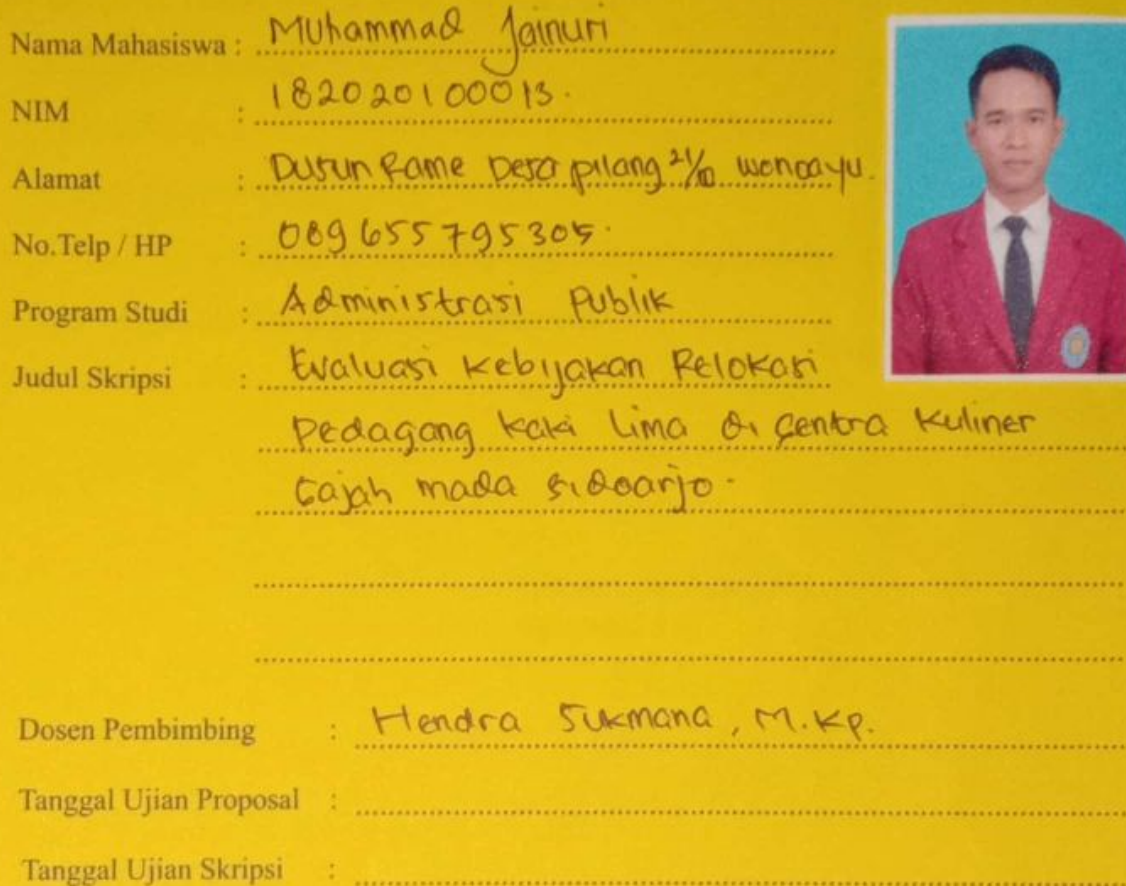 Nama Mahasiswa : Muhammad Jainuri
NIM : 182020100013.
Alamat : Dusun Rame Desa pilang 21/10 wonoayu.
No.Telp / HP : 089655795305.
Program Studi : Administrasi Publik
Judul Skripsi : Evaluasi Kebijakan Relokasi
Pedagang kaki Lima di Sentra Kuliner
Gajah mada Sidoarjo.
Dosen Pembimbing : Hendra Sukmana, M.KP.
Tanggal Ujian Proposal :
Tanggal Ujian Skripsi :